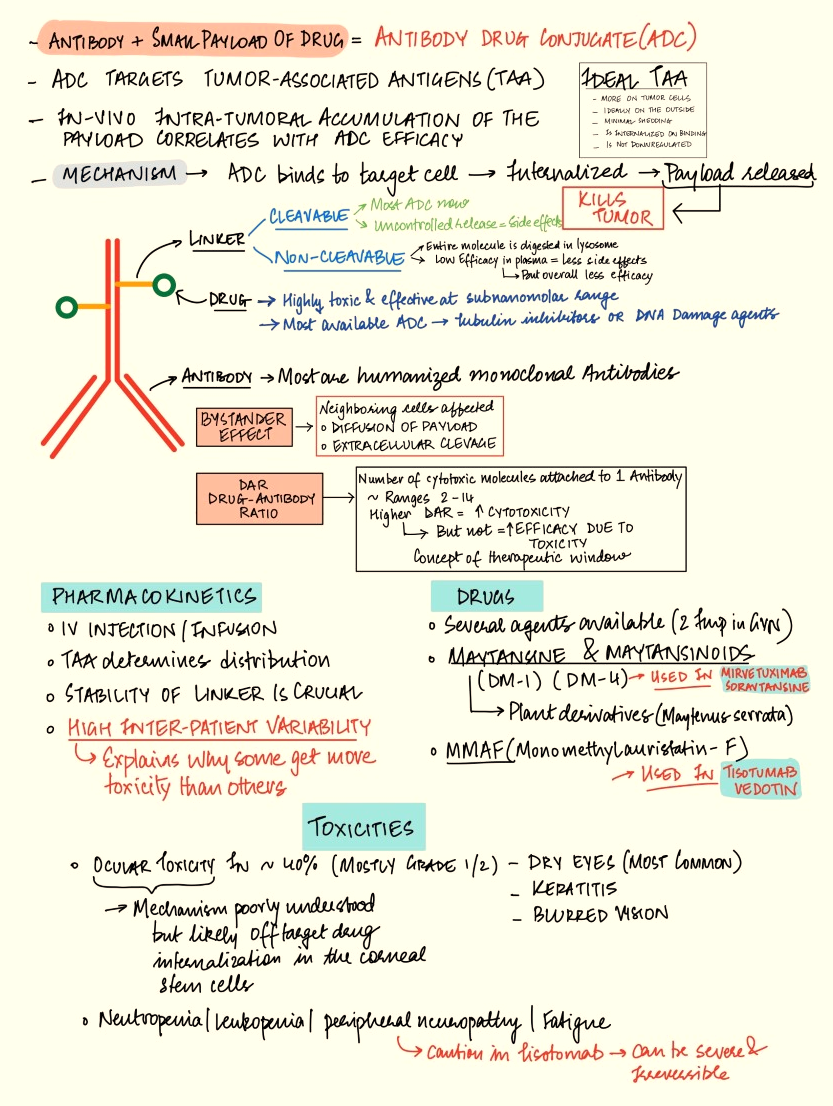 - ANTIBODY + SMALL PAYLOAD OF DRUG = ANTIBODY DRUG CONJUGATE (ADC)
- ADC TARGETS TUMOR-ASSOCIATED ANTIGENS (TAA)
IDEAL TAA
- MORE ON TUMOR CELLS
- IDEALLY ON THE OUTSIDE
- MINIMAL SHEDDING
- IS INTERNALIZED ON BINDING
- IS NOT DOWNREGULATED
- IN-VIVO INTRA-TUMORAL ACCUMULATION OF THE
PAYLOAD CORRELATES WITH ADC EFFICACY
- MECHANISM → ADC binds to target cell → Internalized → Payload released
KILLS
TUMOR
LINKER
CLEAVABLE
Most ADC now
Uncontrolled release = Side effects
NON-CLEAVABLE
Entire molecule is digested in lysosome
Low Efficacy in plasma = less side effects
But overall less efficacy
DRUG → Highly toxic & effective at subnanomolar range
→ Most available ADC → Tubulin inhibitors OR DNA Damage agents
ANTIBODY → Most are humanized monoclonal Antibodies
BYSTANDER
EFFECT
Neighboring cells affected
o DIFFUSION OF PAYLOAD
o EXTRACELLULAR CLEVAGE
DAR
DRUG-ANTIBODY
RATIO
Number of cytotoxic molecules attached to 1 Antibody
~ Ranges 2-14
Higher DAR = ↑ CYTOTOXICITY
But not = ↑ EFFICACY DUE TO
TOXICITY
Concept of therapeutic window
PHARMACOKINETICS
o IV INJECTION/INFUSION
o TAA determines distribution
o STABILITY OF LINKER IS CRUCIAL
o HIGH INTER-PATIENT VARIABILITY
Explains why some get more
toxicity than others
DRUGS
o Several agents available (2 Imp in GYN)
o MAYTANSINE & MAYTANSINOIDS
(DM-1) (DM-4) → USED IN MIRVETUXIMAB
SORAVTANSINE
Plant derivatives (Maytenus serrata)
o MMAF (Monomethylauristatin-F)
→ USED IN TISOTUMAB
VEDOTIN
TOXICITIES
o OCULAR TOXICITY IN ~ 40% (MOSTLY GRADE 1/2) - DRY EYES (MOST COMMON)
- KERATITIS
- BLURRED VISION
→ Mechanism poorly understood
but likely off target drug
internalization in the corneal
stem cells
o Neutropenia | leukopenia | peripheral neuropathy | Fatigue
Caution in tisotomab → Can be severe &
Irreversible